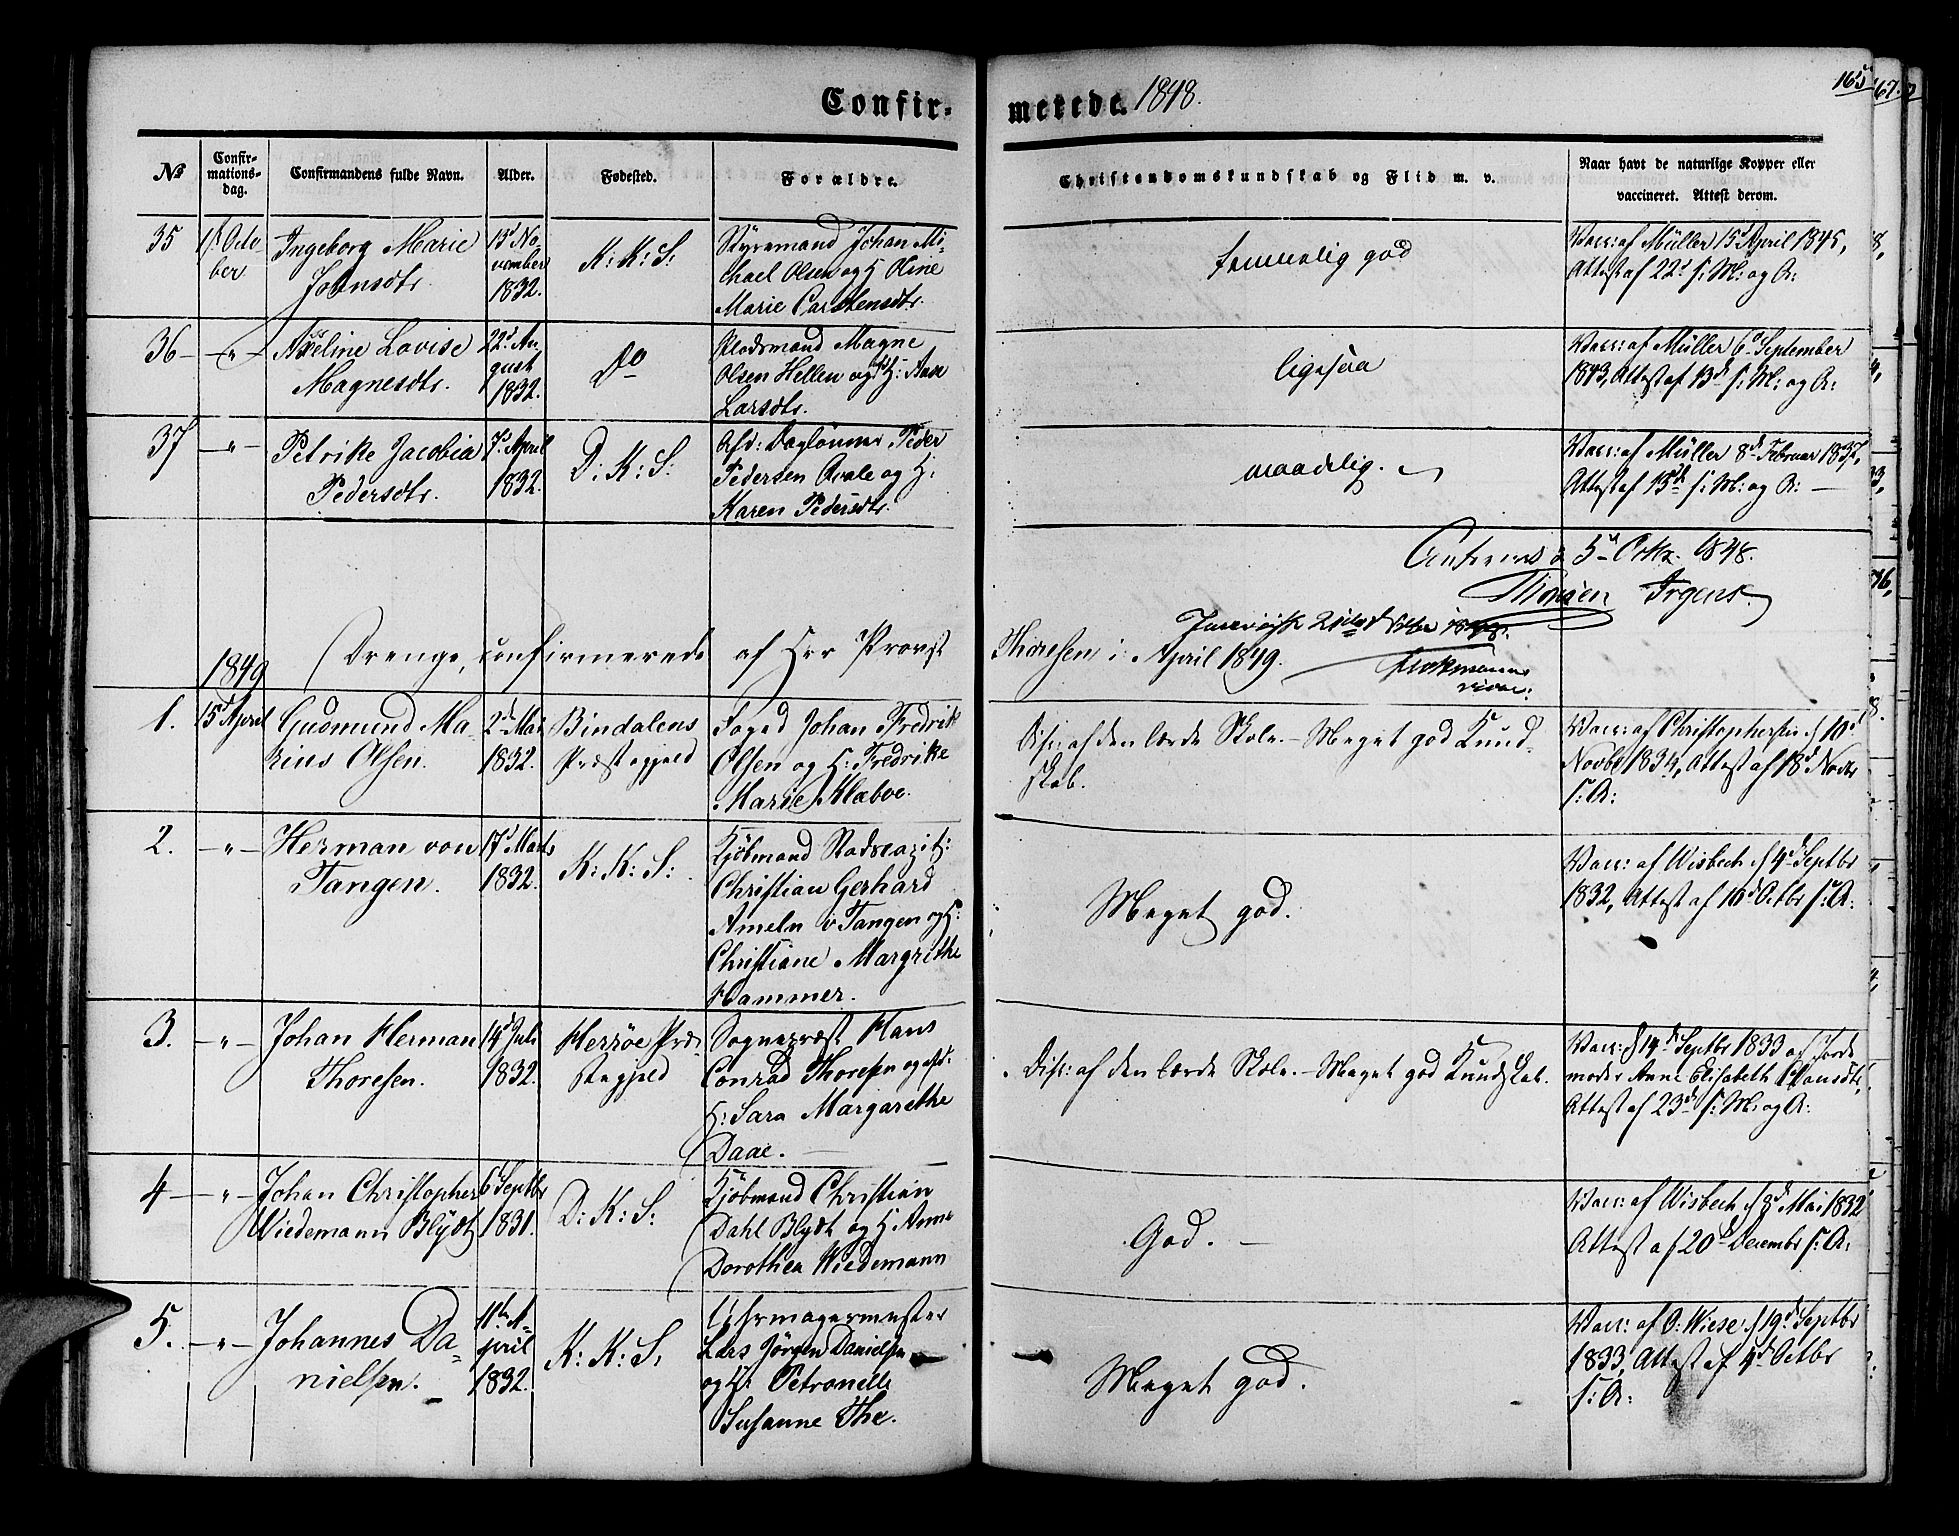 Confir- merede. 1848.
165
67.
No
Confir-
mations-
dag.
Confirmandens fulde Navn.
Alder.
Fødested.
Forældre.
Christendomskundskab og Flid m. v.
Naar havt de naturlige Kopper eller
vaccineret. Attest derom.
35
1st Octo
ber
Ingeborg Marie
Johnsdtr.
13d No-
vember
1832.
K: K: S:
Styrmand Johan Mi-
chael Olsen og H. Oline
Marie Carstensdtr.
temmelig god
Vacc: af Müller 15d April 1845,
Attest af 22d s: M: og A:
36
"
Axeline Lovise
Magnesdtr.
22d Au-
gust
1832.
Do
Magne
Olsen Hellen og H: Aase
Larsdtr.
ligesaa
Vacc: af Müller 6d September
1843, Attest af 13d s: M: og A:
37
"
Petrike Jacobia
Pedersdtr.
7d April
1832.
D: K: S:
Afd: Daglønner Peder
Pedersen og H:
Karen Pedersdtr.
maadelig.
Vacc: af Müller 8d Februar 1837,
Attest af 15d s: M: og A:
5 Octbr. 1848.
Irgens.
1849
Drenge, confirmerede af Hrr Provst
Thoresen i April 1849.
1.
15d April
Gudmund Ma-
rius Olsen.
2d Mai
1832.
Bindalens
Præstegjeld
Foged Johan Fredrik
Olsen og H: Fredrikke
Marie Klæboe.
Disc: af den lærde Skole. - Meget god Kund-
skab.
Vacc: af Christophersen d 10d
Novbr 1834, Attest af 18d Novbr
s: A:
2.
"
Herman von
Tangen.
17d Marts
1832.
K: K: S:
Kjøbmand
Christian Gerhard
Ameln v Tangen og H:
Christiane Margrethe
Hammer.
Meget god.
Vacc: af Wisbech d 4d Septbr
1832, Attest af 10d Octbr s: A:
3.
"
Johan Herman
Thoresen.
14d Juli
1832.
Herröe Præ-
stegjeld
Sognepræst Hans
Conrad Thoresen og afd:
H: Sara Margarethe
Daae.
Disc: af den lærde Skole. - Meget god Kundskab.
Vacc: d 14d Septbr 1833 af Jorde
moder Anne Elisabeth Hansdtr,
Attest af 23d s: M: og A:
4
"
Johan Christopher
Wiedemann Blydt
6 Septbr
1831.
D: K: S:
Kjøbmand Christian
Dahl Blydt og H: Anne
Dorothea Wiedemann
God.
Vacc: af Wisbech d Mai 1832
Attest af 20d Decembr s: A:
5.
"
Johannes Da-
nielsen.
11te A-
pril
1832.
K: K: S:
Uhrmagermester
Lars Jörgen Danielsen
og H: Petronelle
Susanne The.
Meget god.
Vacc: af O: Wiese d 19d Septbr
1833, Attest af 4d Octbr
s: A: